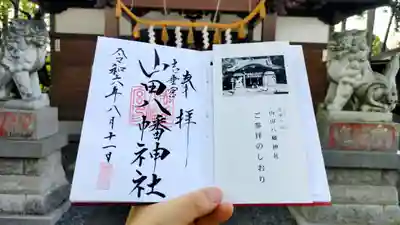 奉拝
山田八幡神社
令和二年八月十一日
山田八幡神社
ご参拝のしおり